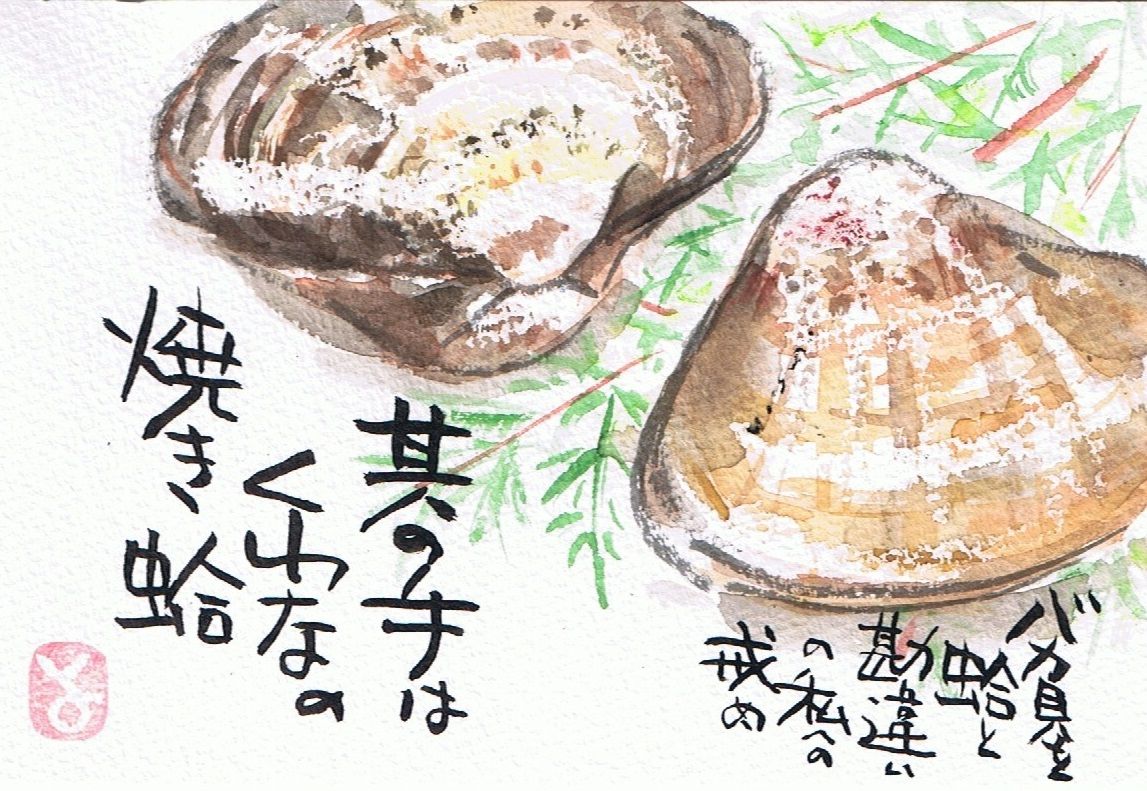 バカ貝を
蛤と
勘違い
の私への
戒め
其の手は
くわなの
焼き蛤